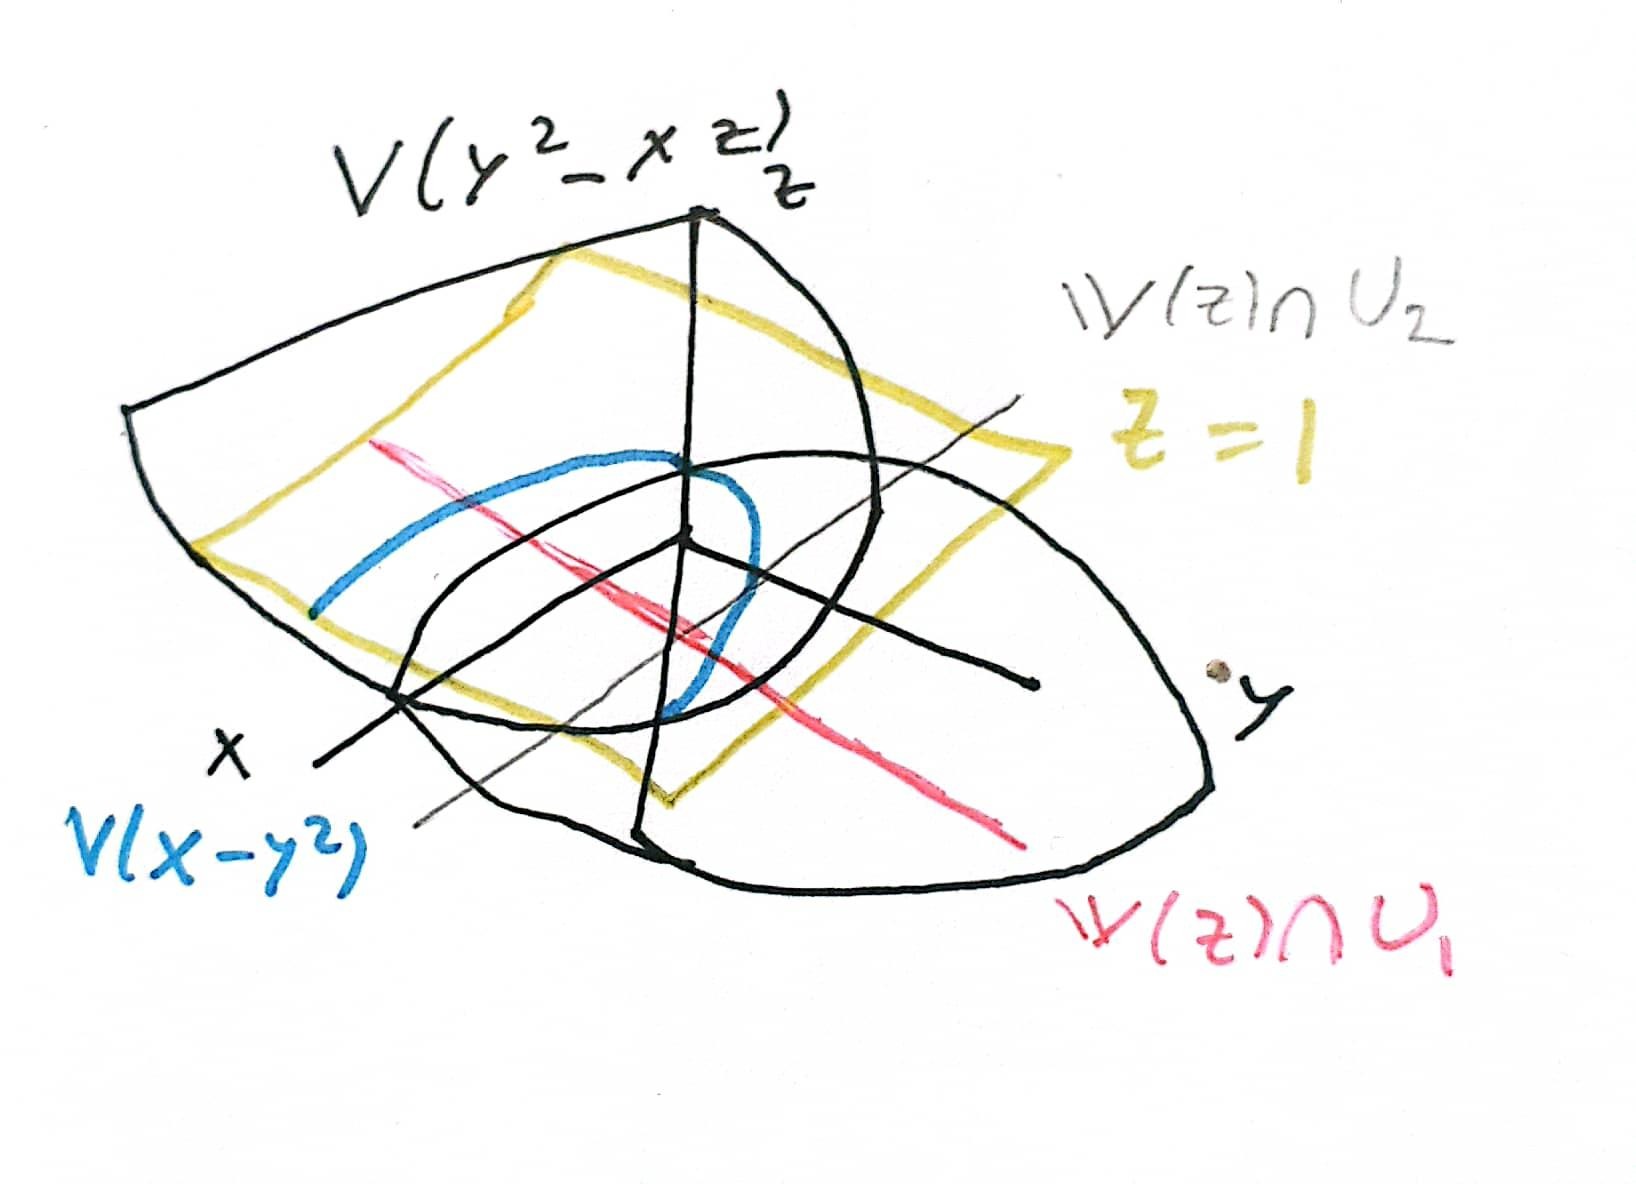 V(y²-xz)
z
V(z)∩U₂
z=1
y
x
V(x-y²)
V(z)∩U₁